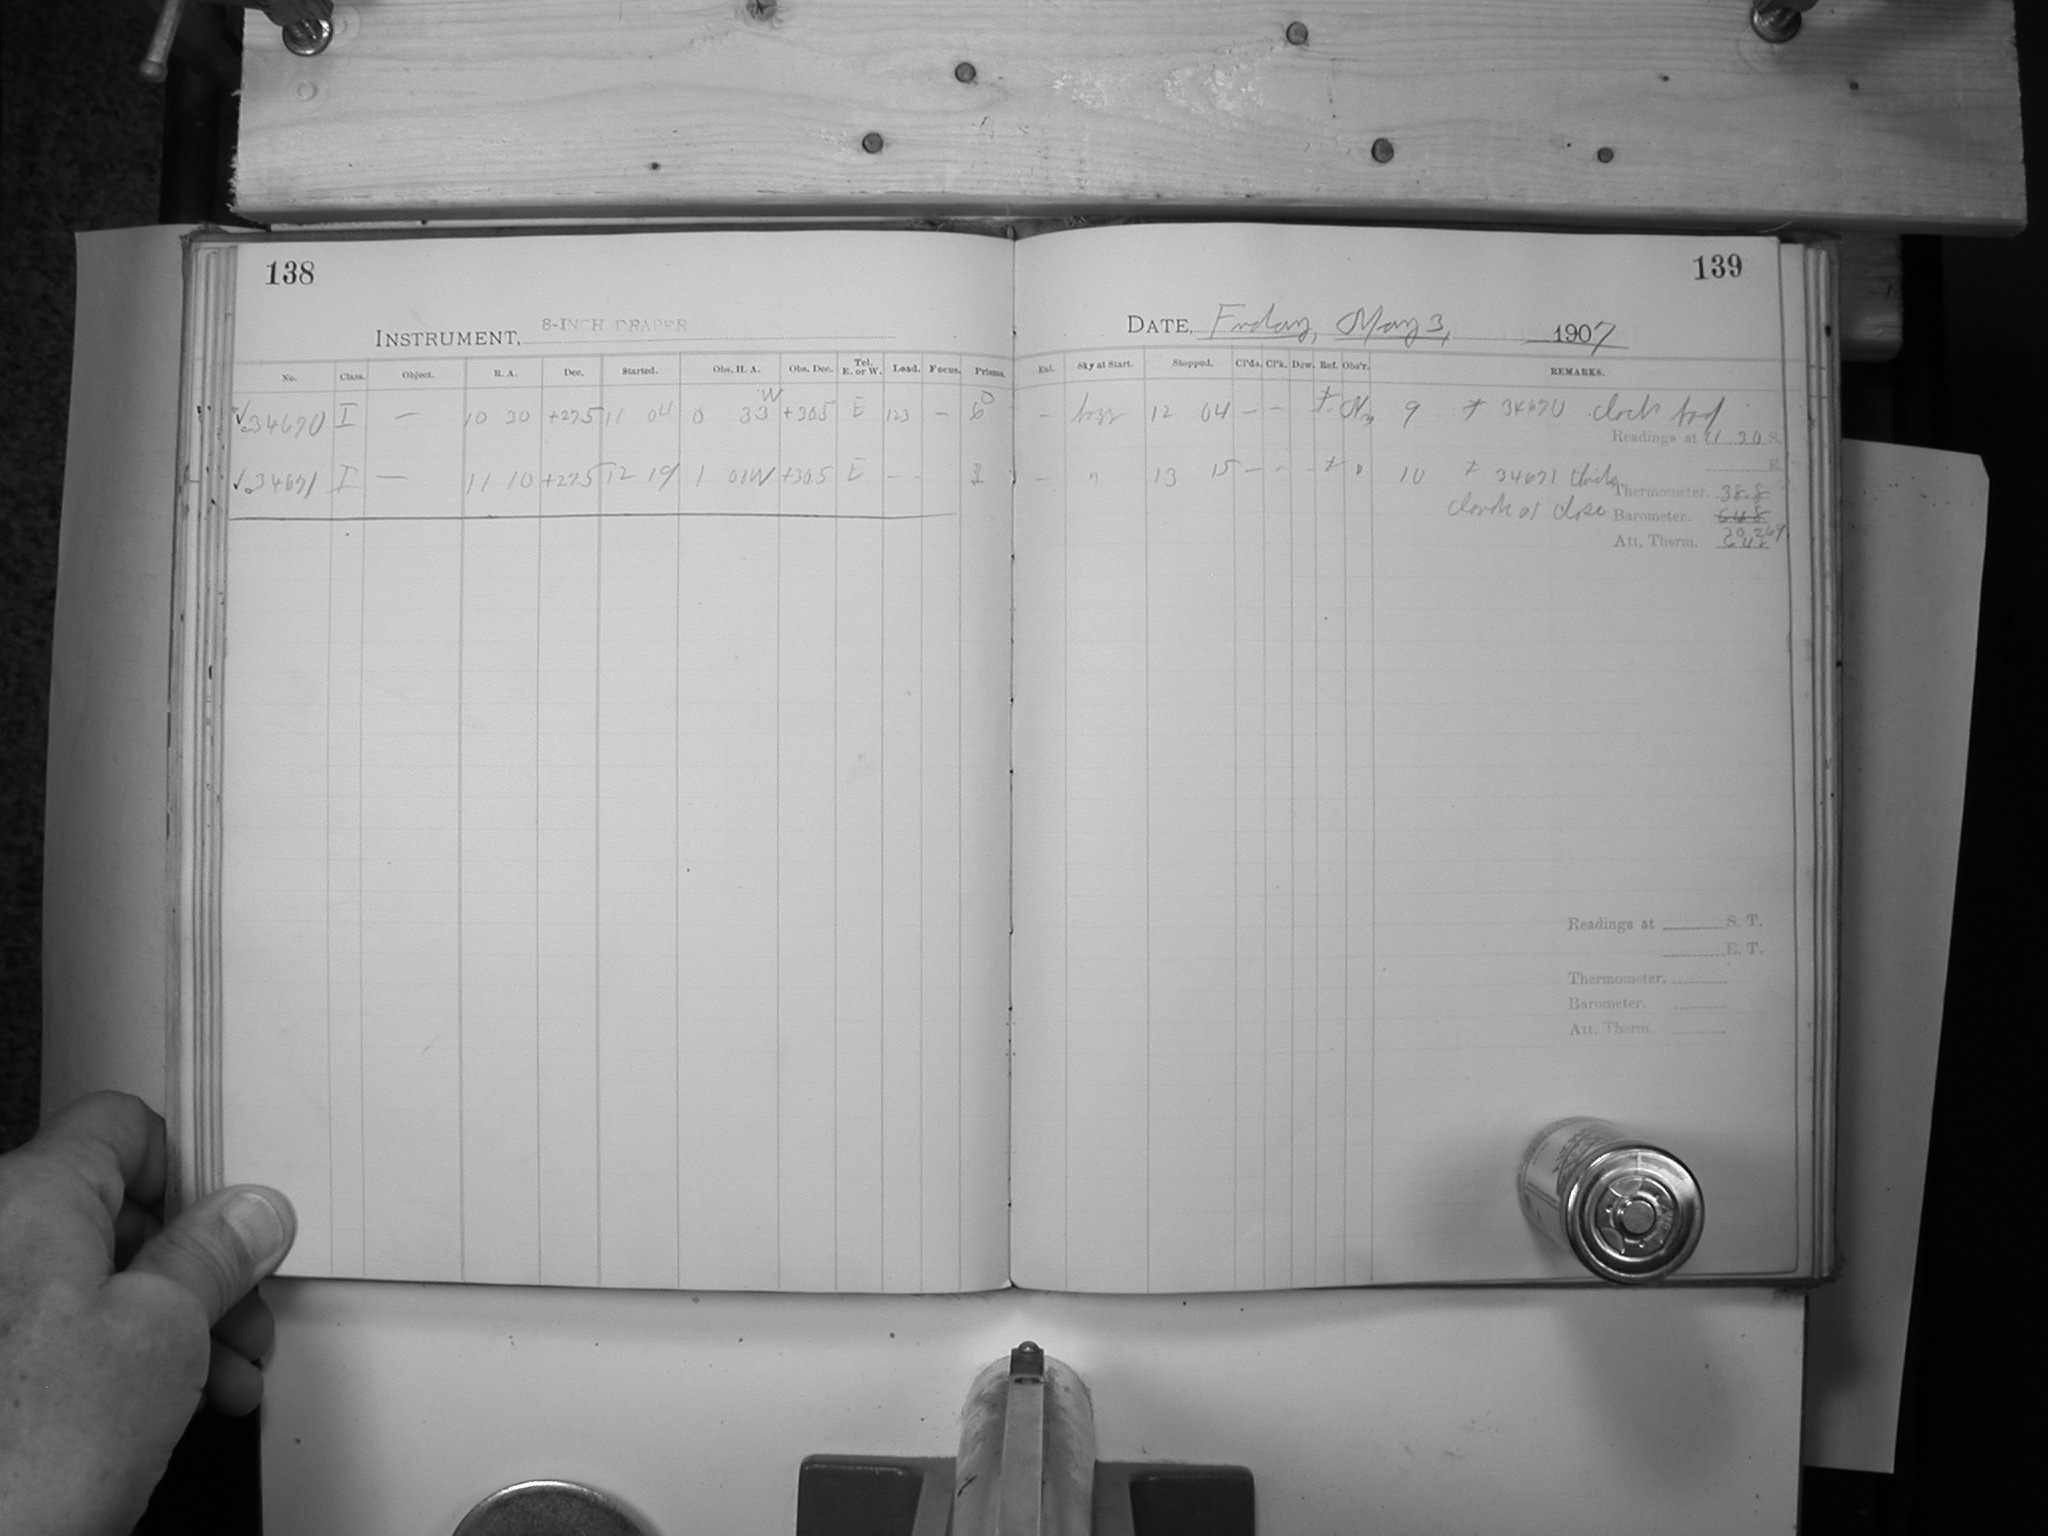 138
INSTRUMENT, 8-INCH DRAPER
No. Class. Object. R. A. Dec. Started. Obs. H. A. Obs. Dec. Tel. E. or W. Load. Focus. Prisms.
√ 34670 I — 10 30 +27.5 11 04 0 33 W +30.5 E 123 —
√ 34671 I — 11 10 +27.5 12 19 1 08W +30.5 E - -
139
DATE, Friday, May 3, 1907
Ext. Sky at Start. Stopped. Cl'ds. Cl'k. Dew. Ref. Obs'r. REMARKS.
— hazy 12 04 — — 9 34670 clock
Readings at 11 30 S.
— " 13 15 — - - " 10 34671
E
Thermometer. 38.8
close Barometer. 30.269
Att. Therm.
Readings at S. T.
E. T.
Thermometer.
Barometer.
Att. Therm.